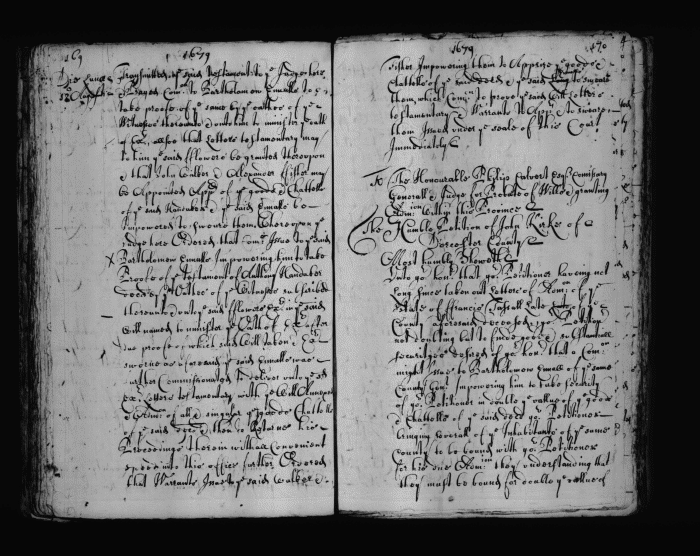 169 1679
Transmitted ye said Testament to ye Judge here
& prayed Com: to Bartholomew Ennalls to
take proofe of ye same by ye oathes of ye
Witnesses thereunto & unto him to minister ye oath
of Ex: allsoe that Letters testamentary may
to him ye said fflowers be granted thereupon
& that John Walker & Alexander ffisher may
be Appointed App: of ye goods & Chattells
of ye said & ye said Ennalls to
Impowered to sweare them Whereupon ye
Judge here Ordered that Com: Issue to ye said
X Bartholomew Ennalls Impowering him to take
Proofe of ye testament of Anthony
deced: by Oathes of ye Witnesses subscribed
thereunto & unto ye said fflowers Ex: in ye said
Will named to minister ye Oath of Ex: after
due proofe of which said Will taken & Ex:
sworne as aforesaid ye said Ennalls was
further Commissionated to deliver unto ye said
Ex: Letters testamentary with ye Will Annexed
& Adm: of all & singular ye goods & Chattells
of ye said deced: then to Returne his
Proceedings therein with all Convenient
speed into this office further Ordered
that Warrants Issue to ye said Walker &
1679 170
ffisher Impowering them to Apprize ye goods &
Chattells of ye said deced: & ye said to sweare
them, which Com: to prove ye said Will Letters
testamentary & Warrants to App: & to sweare
them Issued under ye seale of this Court
Immediately
To The Honourable Philip Calvert Esqr Comissary
Generall & Judge for Probate of Wills & granting
Adm: within this Province
The Humble Petition of John Kirke of
Dorcester County
Most humbly Sheweth
Unto yor honr: that yor Petitioner haveing not
Long since taken out Letters of Adm: of ye
Estate of ffrancis Late of
County aforesaid deceased, yor Petitioner
not doubting but to finde good & substantiall
security & desired of yor honr: that a Com:
might Issue to Bartholomew Ennalls of ye same
County Gent: Impowering him to take security
of yor Petitioner in double ye vallue of ye goods
& Chattells of ye said deced: yor Petitioner
bringing severall of ye Inhabitants of ye same
County to be bound with yor Petitioner
for his due Adm: they understanding that
they must be bound for double ye vallue of